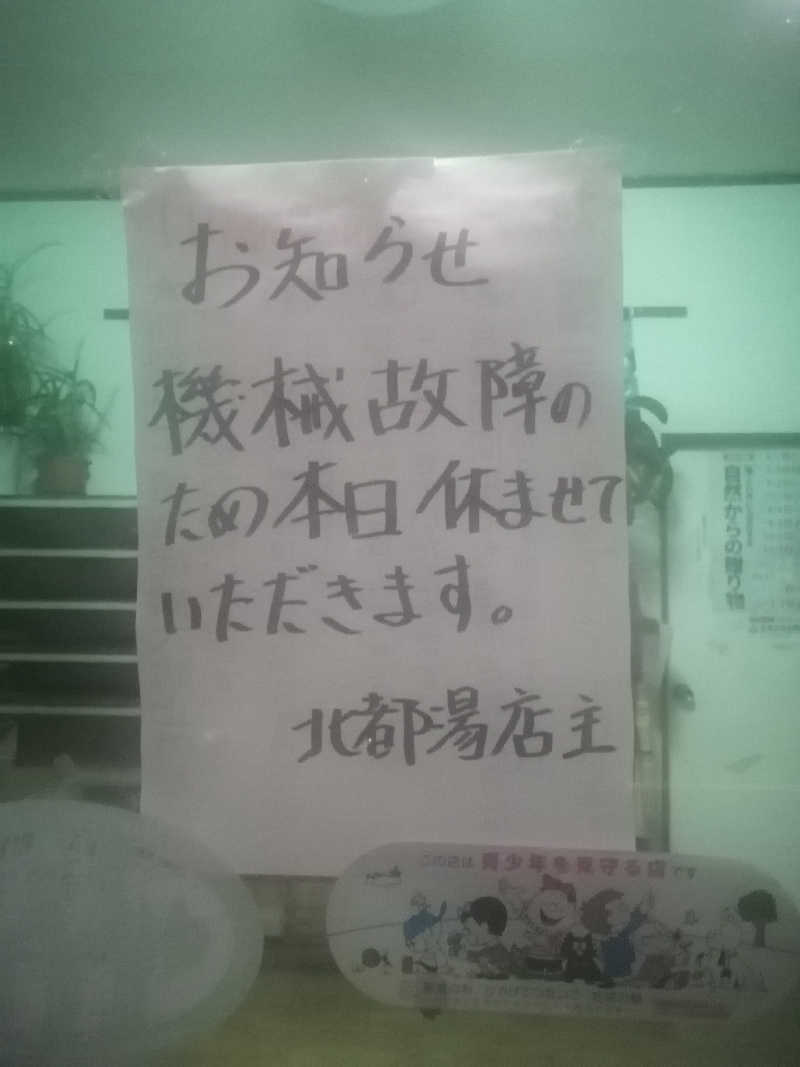 お知らせ
機械故障の
ため本日休ませて
いただきます。
北都湯店主
自然からの贈り物
この店は青少年を見守る店です